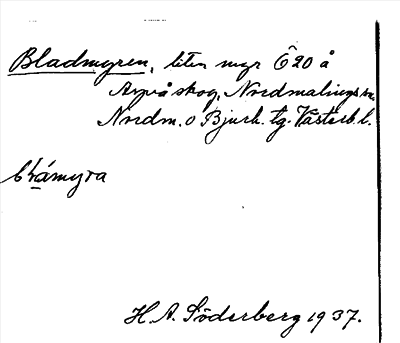 Bladmyren, liten myr Ö 20 å
skog, Nordmalings sn.
Nordm. o Bjurh. tg. Västerb. l.
H. A. Söderberg 1937.